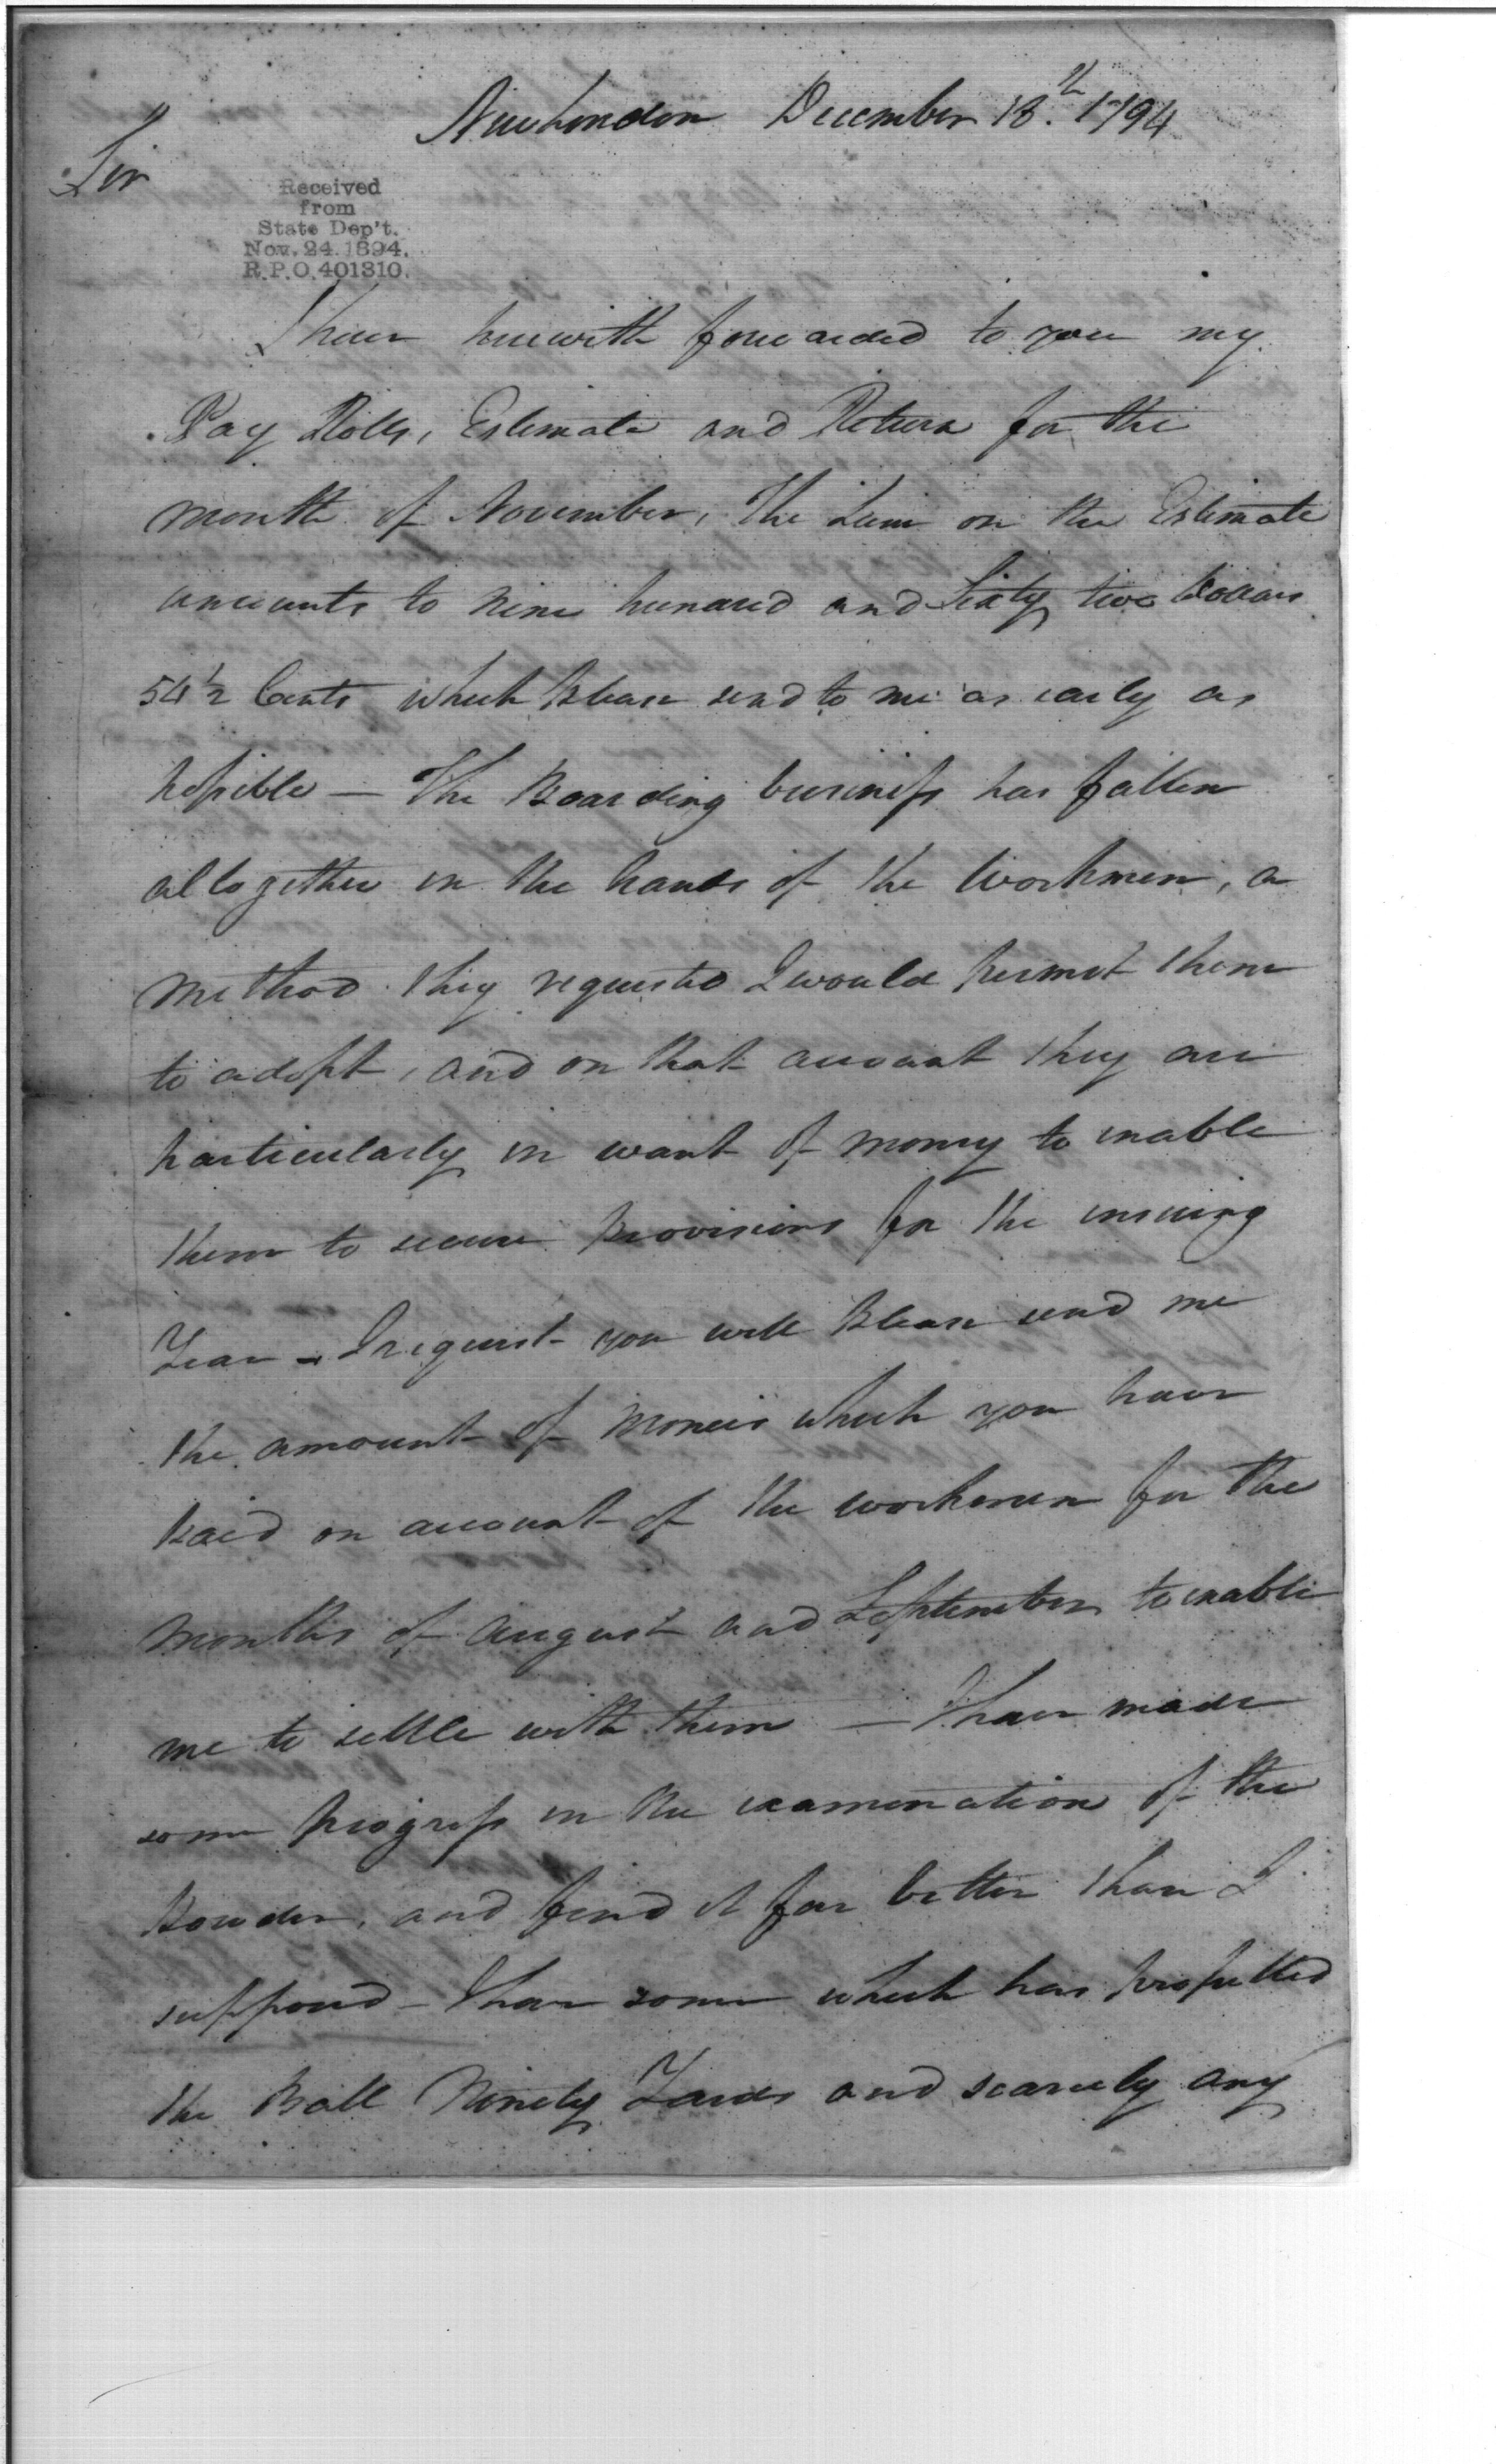 New London December 18th. 1794
Sir
Received
from
State Dep't.
Nov. 24. 1894.
R.P.O. 401310.
I have herewith forwarded to you my
Pay Rolls, Estimate and Return for the
month of November, The Sum on the Estimate
amounts to nine hundred and Sixty two Dollars
54 1/2 Cents which Please send to me as early as
possible — The Boarding business has fallen
altogether in the hands of the Workmen, a
method they requested I would permit them
to adopt, and on that account they are
particularly in want of money to enable
them to secure Provisions for the insuing
Year — I request you will Please send me
the amount of Monies which you have
Paid on account of the workmen for the
months of August and September to enable
me to settle with them — I have made
some progress in the examination of the
Powder, and find it far better than I
supposed — I have some which has propelled
the Ball Ninety Yards and scarcely any